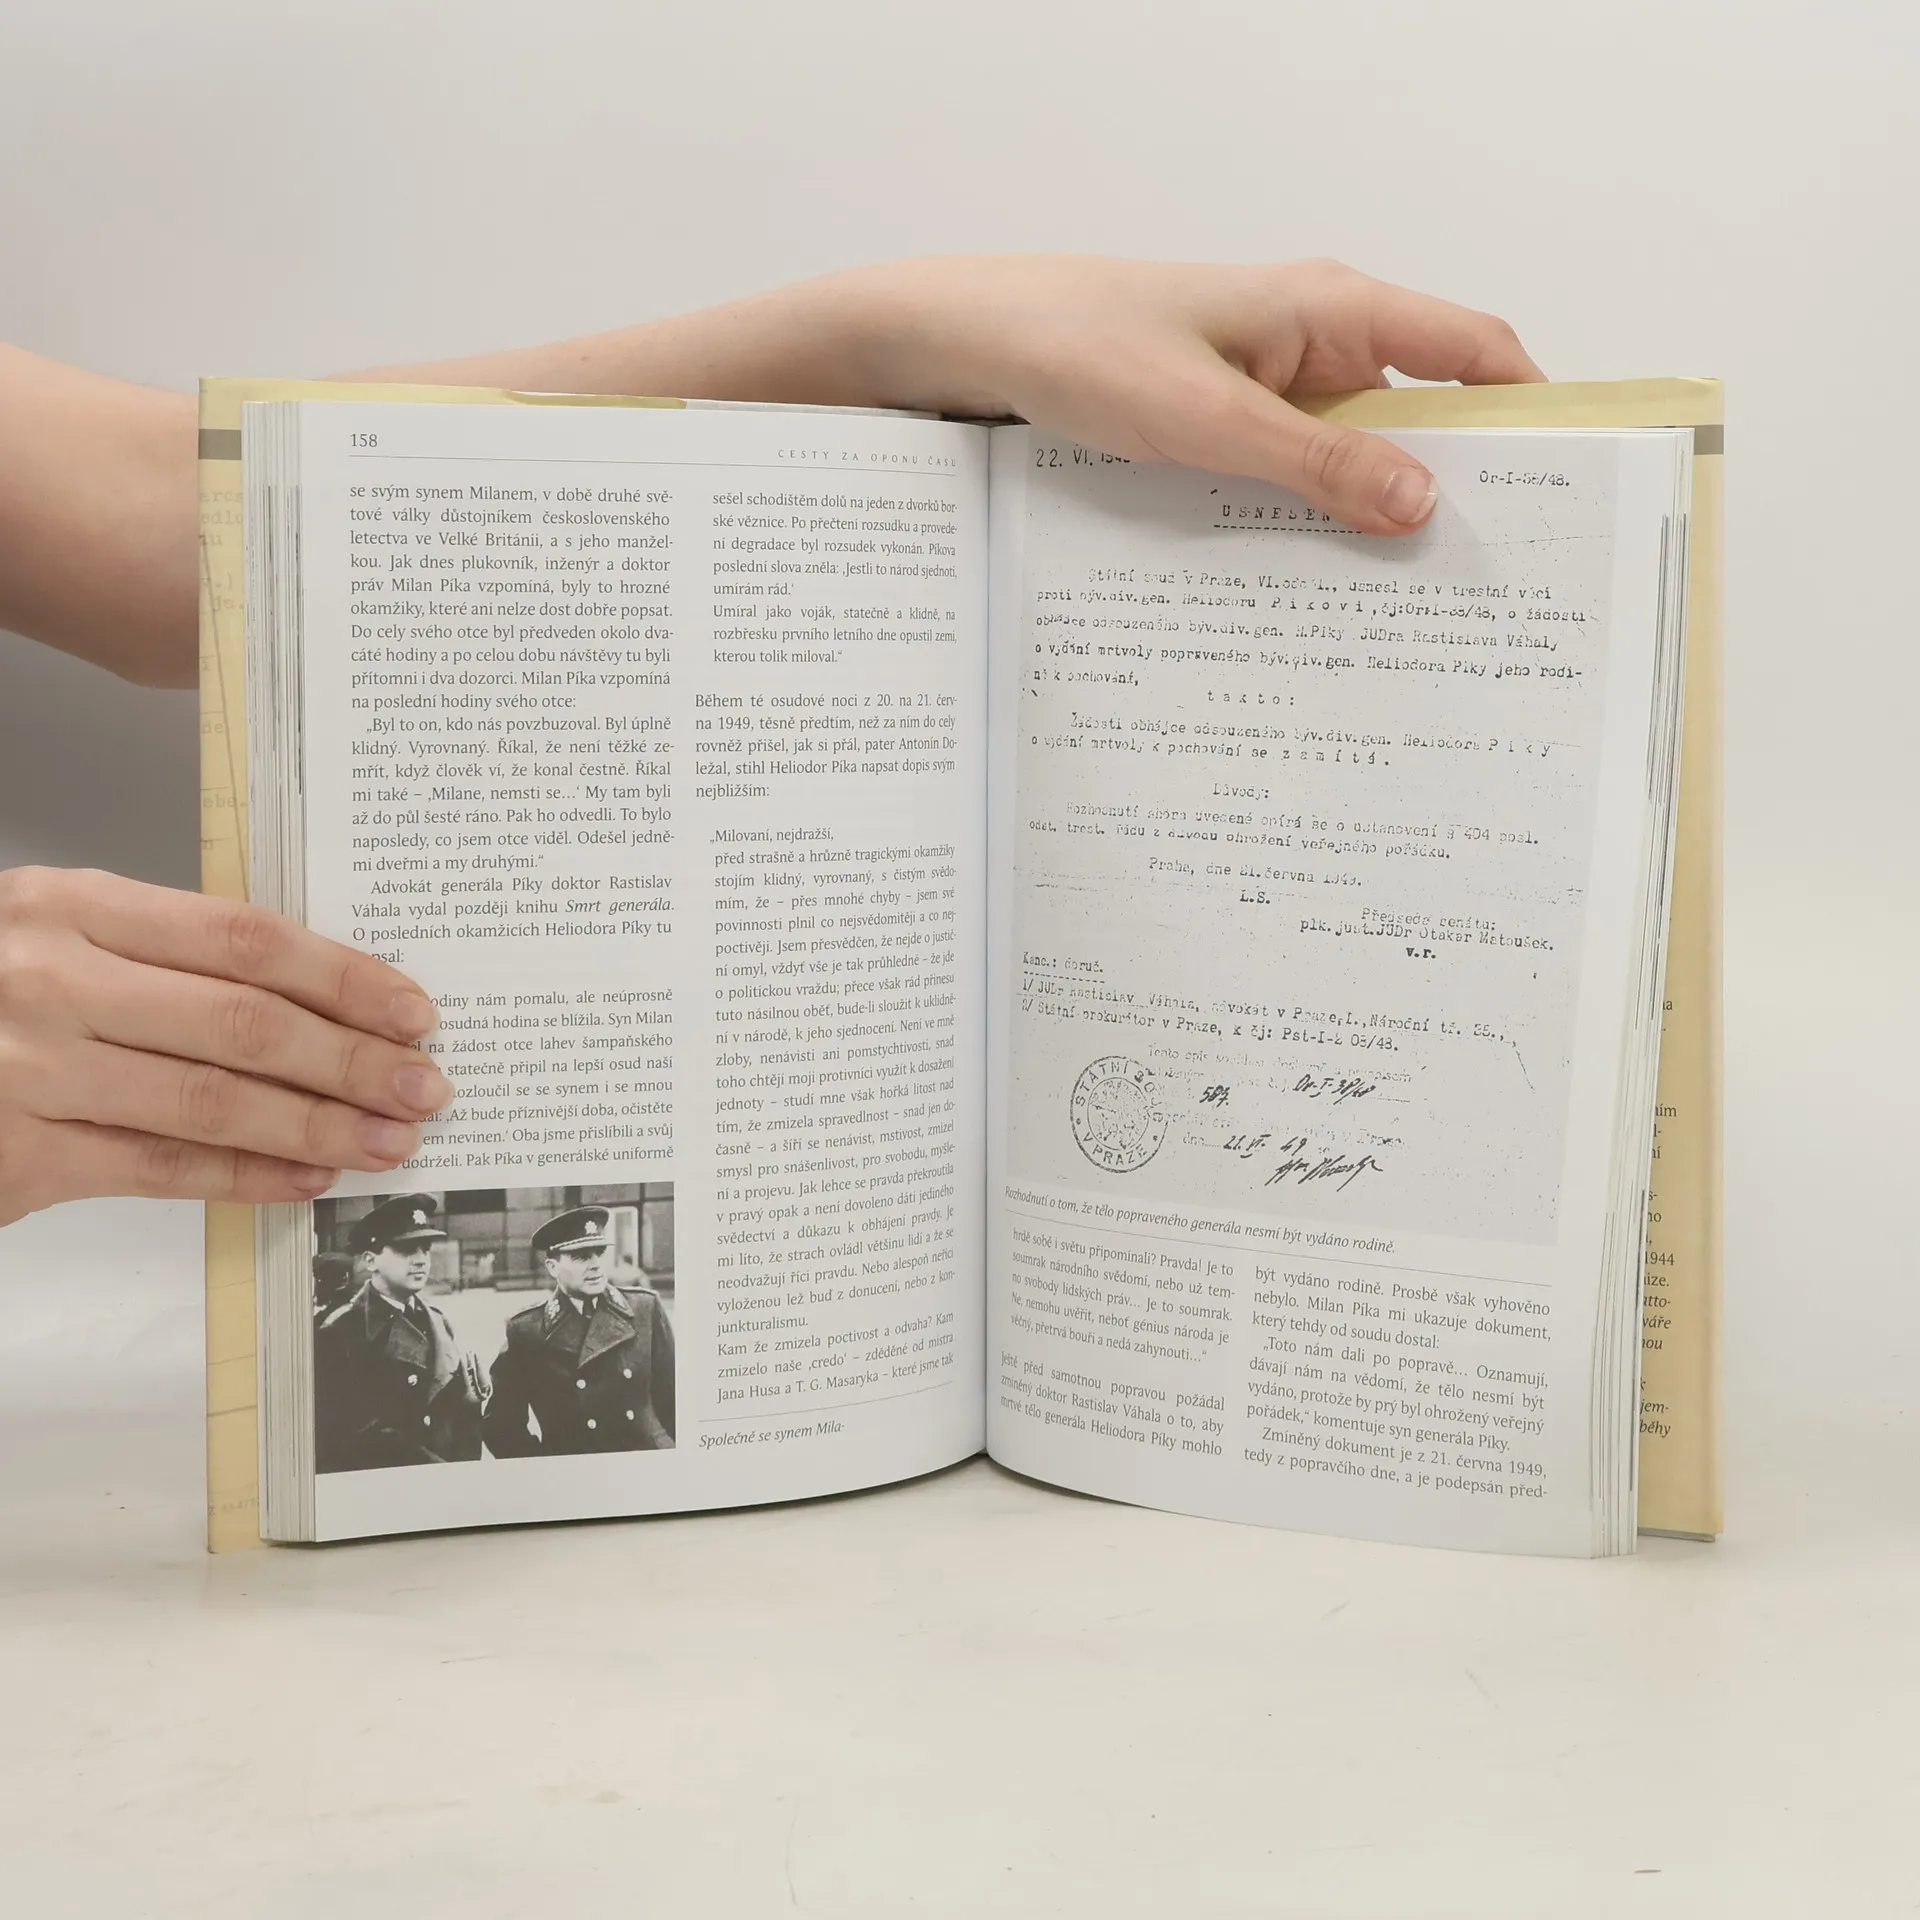 158
CESTY ZA OPONU ČASU
se svým synem Milanem, v době druhé svě-
tové války důstojníkem československého
letectva ve Velké Británii, a s jeho manžel-
kou. Jak dnes plukovník, inženýr a doktor
práv Milan Píka vzpomíná, byly to hrozné
okamžiky, které ani nelze dost dobře popsat.
Do cely svého otce byl předveden okolo dva-
cáté hodiny a po celou dobu návštěvy tu byli
přítomni i dva dozorci. Milan Píka vzpomíná
na poslední hodiny svého otce:
„Byl to on, kdo nás povzbuzoval. Byl úplně
klidný. Vyrovnaný. Říkal, že není těžké ze-
mřít, když člověk ví, že konal čestně. Říkal
mi také – ‚Milane, nemsti se...‘ My tam byli
až do půl šesté ráno. Pak ho odvedli. To bylo
naposledy, co jsem otce viděl. Odešel jedně-
mi dveřmi a my druhými.“
Advokát generála Píky doktor Rastislav
Váhala vydal později knihu Smrt generála.
O posledních okamžicích Heliodora Píky tu
psal:
odiny nám pomalu, ale neúprosně
osudná hodina se blížila. Syn Milan
na žádost otce lahev šampaňského
statečně připil na lepší osud naší
ozloučil se se synem i se mnou
‚Až bude příznivější doba, očistěte
em nevinen.‘ Oba jsme přislíbili a svůj
dodrželi. Pak Píka v generálské uniformě
sešel schodištěm dolů na jeden z dvorků bor-
ské věznice. Po přečtení rozsudku a provede-
ní degradace byl rozsudek vykonán. Píkova
poslední slova zněla: ‚Jestli to národ sjednotí,
umírám rád.‘
Umíral jako voják, statečně a klidně, na
rozbřesku prvního letního dne opustil zemi,
kterou tolik miloval.“
Během té osudové noci z 20. na 21. červ-
na 1949, těsně předtím, než za ním do cely
rovněž přišel, jak si přál, pater Antonín Do-
ležal, stihl Heliodor Píka napsat dopis svým
nejbližším:
„Milovaní, nejdražší,
před strašně a hrůzně tragickými okamžiky
stojím klidný, vyrovnaný, s čistým svědo-
mím, že – přes mnohé chyby – jsem své
povinnosti plnil co nejsvědomitěji a co nej-
poctivěji. Jsem přesvědčen, že nejde o justič-
ní omyl, vždyť vše je tak průhledné – že jde
o politickou vraždu; přece však rád přinesu
tuto násilnou oběť, bude-li sloužit k uklidně-
ní v národě, k jeho sjednocení. Není ve mně
zloby, nenávisti ani pomstychtivosti, snad
toho chtějí moji protivníci využít k dosažení
jednoty – studí mne však hořká lítost nad
tím, že zmizela spravedlnost – snad jen do-
časně – a šíří se nenávist, mstivost, zmizel
smysl pro snášenlivost, pro svobodu, myšle-
ní a projevu. Jak lehce se pravda překroutila
v pravý opak a není dovoleno dáti jediného
svědectví a důkazu k obhájení pravdy. Je
mi líto, že strach ovládl většinu lidí a že se
neodvažují říci pravdu. Nebo alespoň neříci
vyloženou lež buď z donucení, nebo z kon-
junkturalismu.
Kam že zmizela poctivost a odvaha? Kam
zmizelo naše ‚credo‘ – zděděné od mistra
Jana Husa a T. G. Masaryka – které jsme tak
Společně se synem Mila-
22. VI.
Or-I-38/48.
USNESEN
Státní soud v Praze, VI.odděl., usnesl se v trestní věci
proti býv.div.gen. Heliodoru Píkovi, čj:Or-I-38/48, o žádosti
obhájce odsouzeného býv.div.gen. H.Píky JUDra Rastislava Váhaly
o vydání mrtvoly popraveného býv.div.gen. Heliodora Píky jeho rodi-
ně k pochování,
takto:
Žádosti obhájce odsouzeného býv.div.gen. Heliodora Píky
o vydání mrtvoly k pochování se zamítá.
Důvody:
Rozhodnutí shora uvedené opírá se o ustanovení § 404 posl.
odst. trest. řádu z důvodu ohrožení veřejného pořádku.
Praha, dne 21.června 1949.
L.S.
Předseda senátu:
plk.just.JUDr Otakar Matoušek.
v.r.
Kanc.: doruč.
1/ JUDr Rastislav Váhala, advokát v Praze,I.,Národní tř. 35.,
2/ Státní prokurátor v Praze, k čj: Pst-I-2 08/48.
587.
Or-I-38/48
STÁTNÍ SOUD V PRAZE
dne 21. VI. 49
Rozhodnutí o tom, že tělo popraveného generála nesmí být vydáno rodině.
hrdě sobě i světu připomínali? Pravda! Je to
soumrak národního svědomí, nebo už tem-
no svobody lidských práv... Je to soumrak.
Ne, nemohu uvěřit, neboť génius národa je
věčný, přetrvá bouři a nedá zahynouti...“
Ještě před samotnou popravou požádal
zmíněný doktor Rastislav Váhala o to, aby
mrtvé tělo generála Heliodora Píky mohlo
být vydáno rodině. Prosbě však vyhověno
nebylo. Milan Píka mi ukazuje dokument,
který tehdy od soudu dostal:
„Toto nám dali po popravě... Oznamují,
dávají nám na vědomí, že tělo nesmí být
vydáno, protože by prý byl ohrožený veřejný
pořádek,“ komentuje syn generála Píky.
Zmíněný dokument je z 21. června 1949,
tedy z popravčího dne, a je podepsán před-
1944